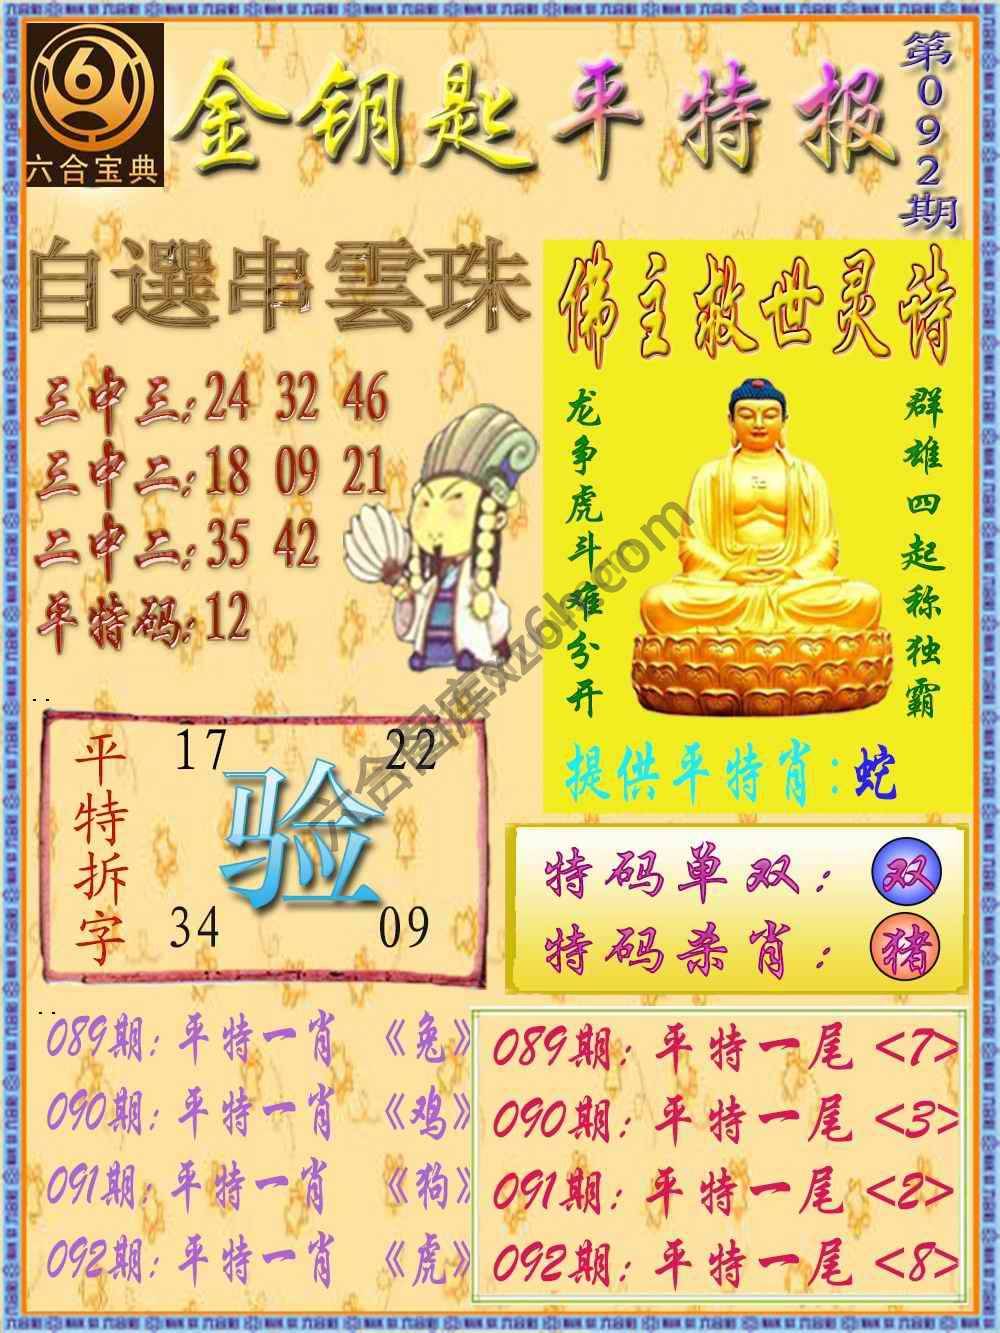 六合宝典
金钥匙平特报
第092期
自選串雲珠
三中三:24 32 46
三中二:18 09 21
二中二:35 42
平特码:12
佛主救世灵诗
龙争虎斗难分开
群雄四起称独霸
提供平特肖:蛇
平特拆字
17 22
验
34 09
特码单双:双
特码杀肖:猪
089期:平特一肖《兔》
090期:平特一肖《鸡》
091期:平特一肖《狗》
092期:平特一肖《虎》
089期:平特一尾<7>
090期:平特一尾<3>
091期:平特一尾<2>
092期:平特一尾<8>
六合图库xz6h.com